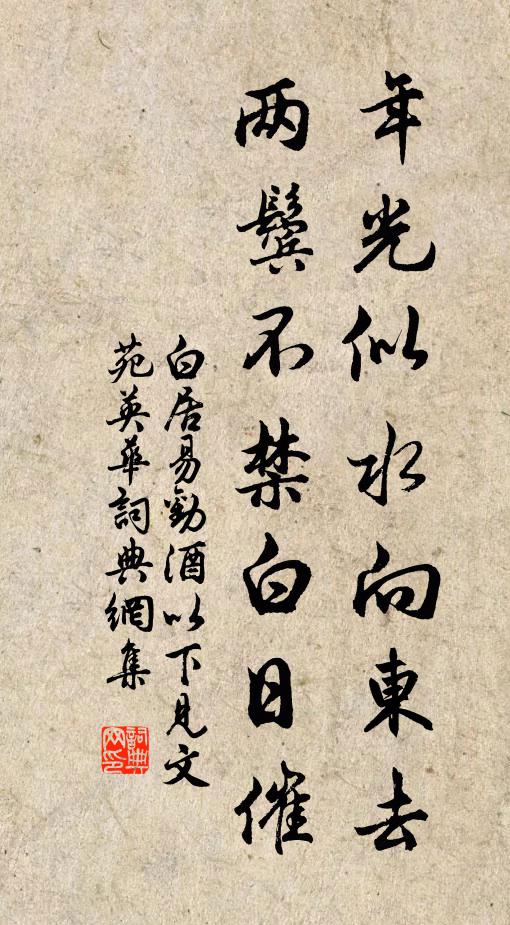 年光似水向東去
两鬢不禁白日催
白居易勸酒以下見文
苑英華詞典網集
詞典网印